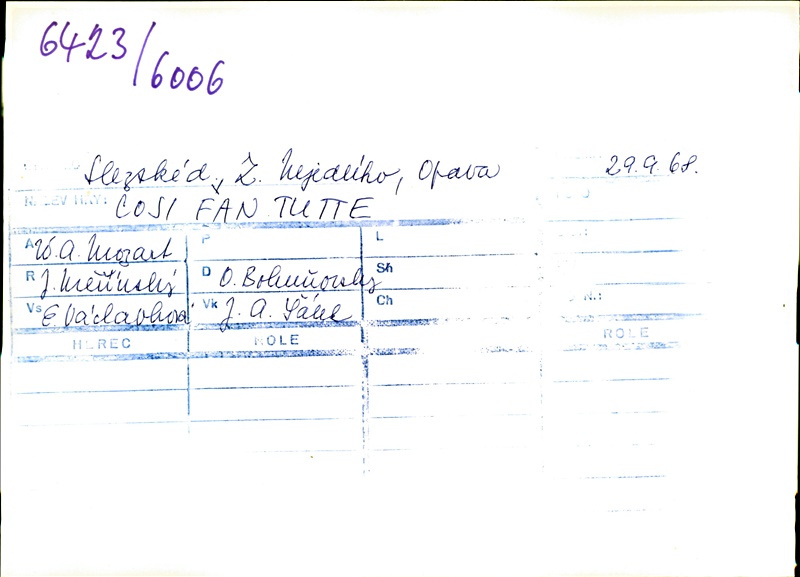 6423/6006
Slezské d. Z. Nejedlého, Opava 29.9.68.
NÁZEV HRY:
COSI FAN TUTTE
A W. A. Mozart P L
R J. Měřínský D O. Bohuňovský Sh
Vs E Václavková Vk J. A. Šálek Ch N.:
HEREC ROLE ROLE